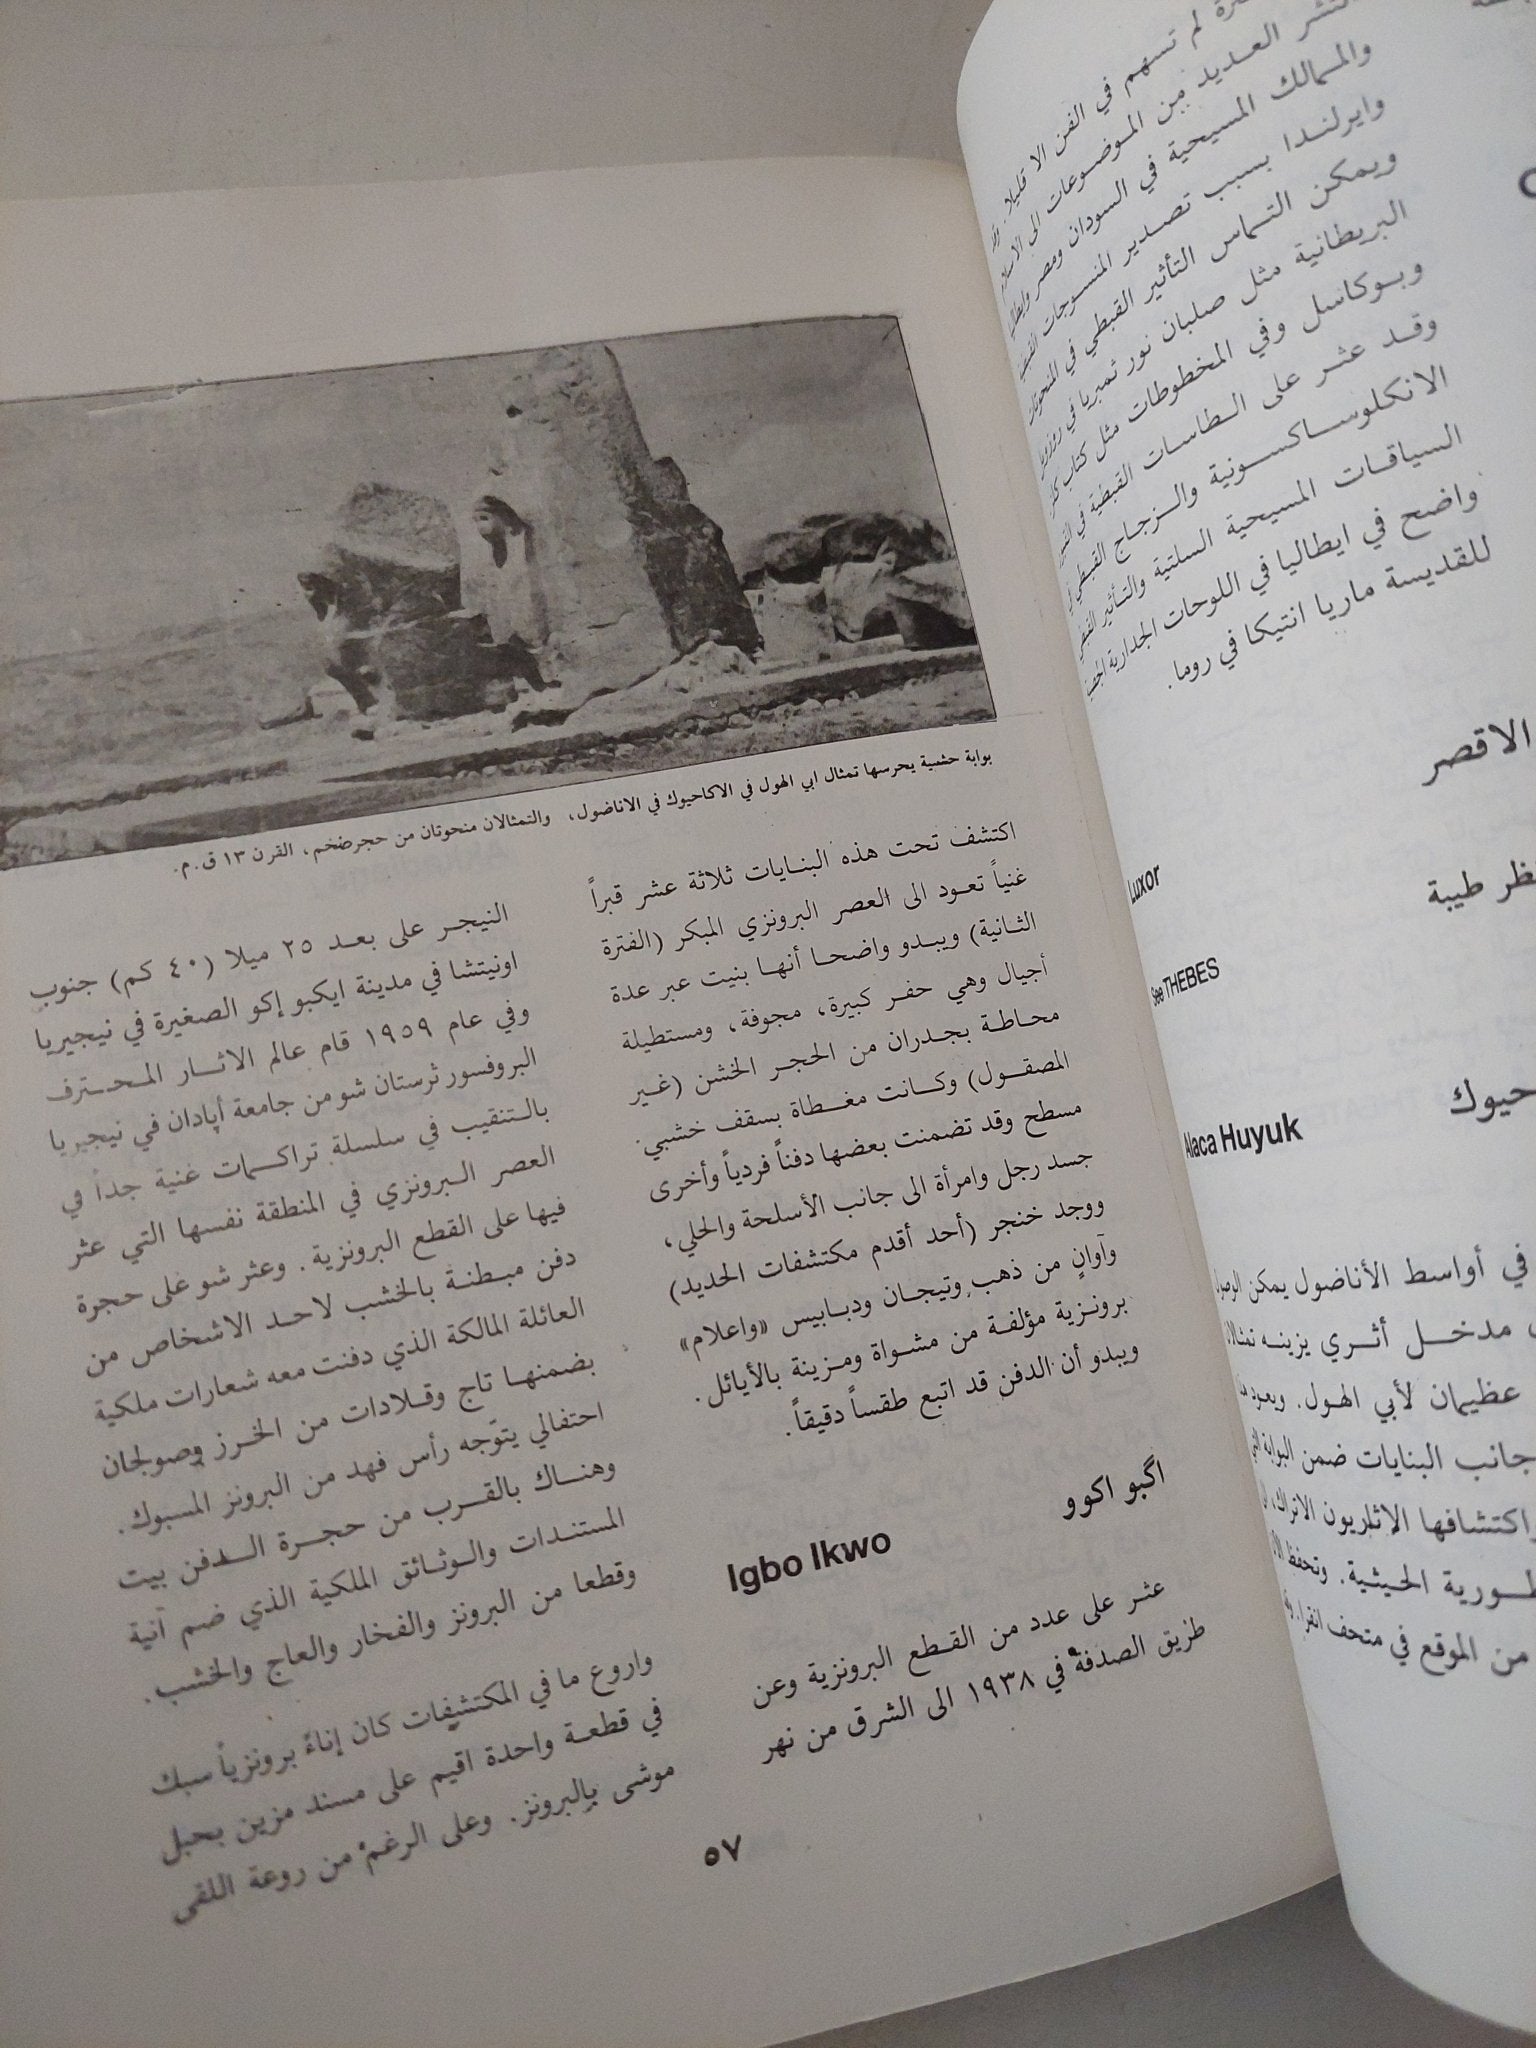 لم تسهم في الفن الا قليلا. وقد
انتشر العديد من الموضوعات الى الاسلام
والممالك المسيحية في السودان ومصر وايطاليا
وايرلندا بسبب تصدير المنسوجات القبطية
ويمكن التماس التأثير القبطي في المنحوتات
البريطانية مثل صلبان نور ثمبريا في
وبوكاسل وفي المخطوطات مثل كتاب
وقد عثر على الطاسات القبطية في
الانكلوساكسونية والزجاج القبطي في
السياقات المسيحية السلتية والتأثير القبطي
واضح في ايطاليا في اللوحات الجدارية
للقديسة ماريا انتيكا في روما.
الاقصر
Luxor
طيبة
See THEBES
حيوك
Alaca Huyuk
في أواسط الأناضول يمكن الوصول
مدخل أثري يزينه تمثالان
عظيمان لأبي الهول. ويعود
جانب البنايات ضمن البوابة التي
اكتشافها الاثاريون الاتراك،
الحيثية. وتحفظ
من الموقع في متحف انقرا.
بوابة حشمية يحرسها تمثال ابي الهول في الاكاحيوك في الاناضول، والتمثالان منحوتان من حجر ضخم، القرن ١٣ ق.م.
اكتشف تحت هذه البنايات ثلاثة عشر قبراً
غنياً تعود الى العصر البرونزي المبكر (الفترة
الثانية) ويبدو واضحا أنها بنيت عبر عدة
أجيال وهي حفر كبيرة، مجوفة، ومستطيلة
محاطة بجدران من الحجر الخشن (غير
المصقول) وكانت مغطاة بسقف خشبي.
مسطح وقد تضمنت بعضها دفناً فردياً وأخرى
جسد رجل وامرأة الى جانب الأسلحة والحلي،
ووجد خنجر (أحد أقدم مكتشفات الحديد)
وآوانٍ من ذهب وتيجان ودبابيس «واعلام»
برونزية مؤلفة من مشواة ومزينة بالأيائل.
ويبدو أن الدفن قد اتبع طقساً دقيقاً.
اگبو اكوو
Igbo Ikwo
عثر على عدد من القطع البرونزية وعن
طريق الصدفة في ١٩٣٨ الى الشرق من نهر
النيجر على بعد ٢٥ ميلا (٤٠ كم) جنوب
اونيتشا في مدينة ايكبو إكو الصغيرة في نيجيريا
وفي عام ١٩٥٩ قام عالم الاثار المحترف
البروفسور ثرستان شو من جامعة أپادان في نيجيريا
بالتنقيب في سلسلة تراكمات غنية جداً في
العصر البرونزي في المنطقة نفسها التي عثر
فيها على القطع البرونزية. وعثر شو على حجرة
دفن مبطنة بالخشب لاحد الاشخاص من
العائلة المالكة الذي دفنت معه شعارات ملكية
بضمنها تاج وقلادات من الخرز وصولجان
احتفالي يتوّجه رأس فهد من البرونز المسبوك.
وهناك بالقرب من حجرة الدفن بيت
المستندات والوثائق الملكية الذي ضم آنية
وقطعا من البرونز والفخار والعاج والخشب.
واروع ما في المكتشفات كان إناءً برونزياً سبك
في قطعة واحدة اقيم على مسند مزين بحبل
موشى بالبرونز. وعلى الرغم من روعة اللقى
٥٧